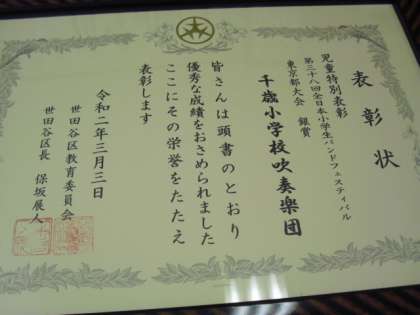 表彰状
児童特別表彰
第三十八回全日本小学生バンドフェスティバル
東京都大会 銀賞
千歳小学校吹奏楽団
皆さんは頭書のとおり
優秀な成績をおさめられました
ここにその栄誉をたたえ
表彰します
令和二年三月三日
世田谷区教育委員会
世田谷区長 保坂展人